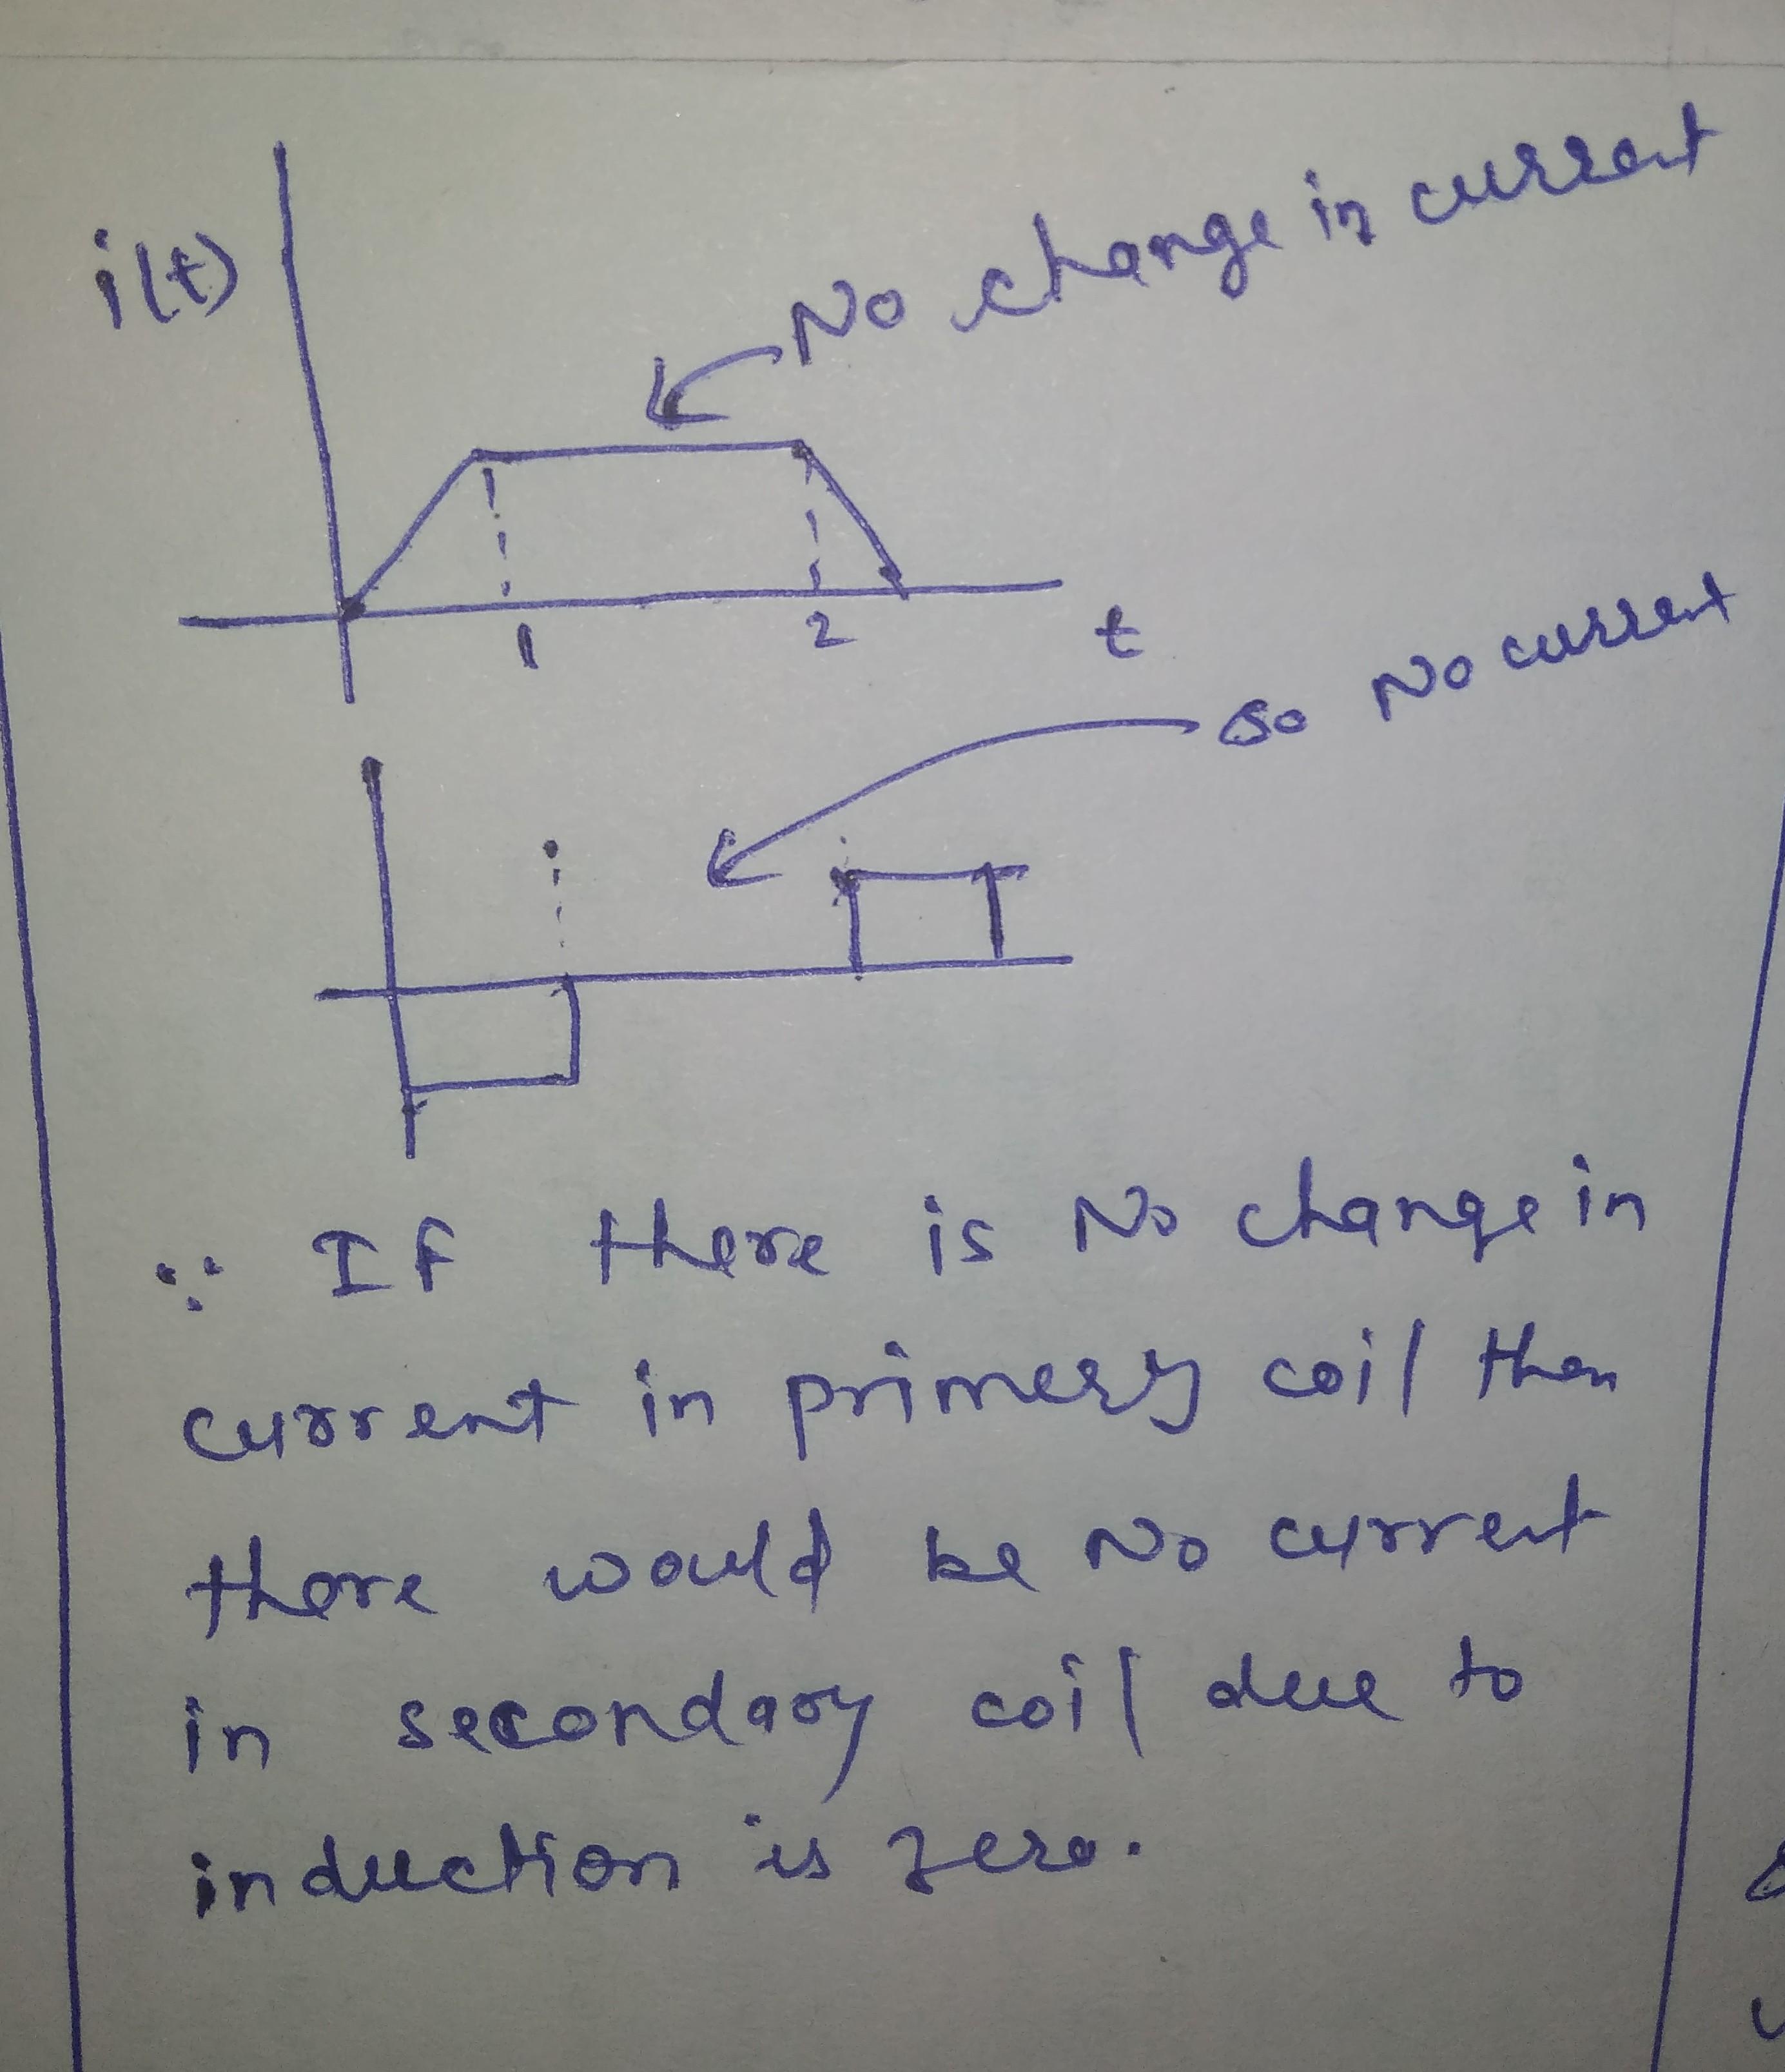 No change in current
i(t)
1 2 t
so No current
∵ If there is No change in
current in primery coil then
there would be No current
in secondary coil due to
induction is zero.